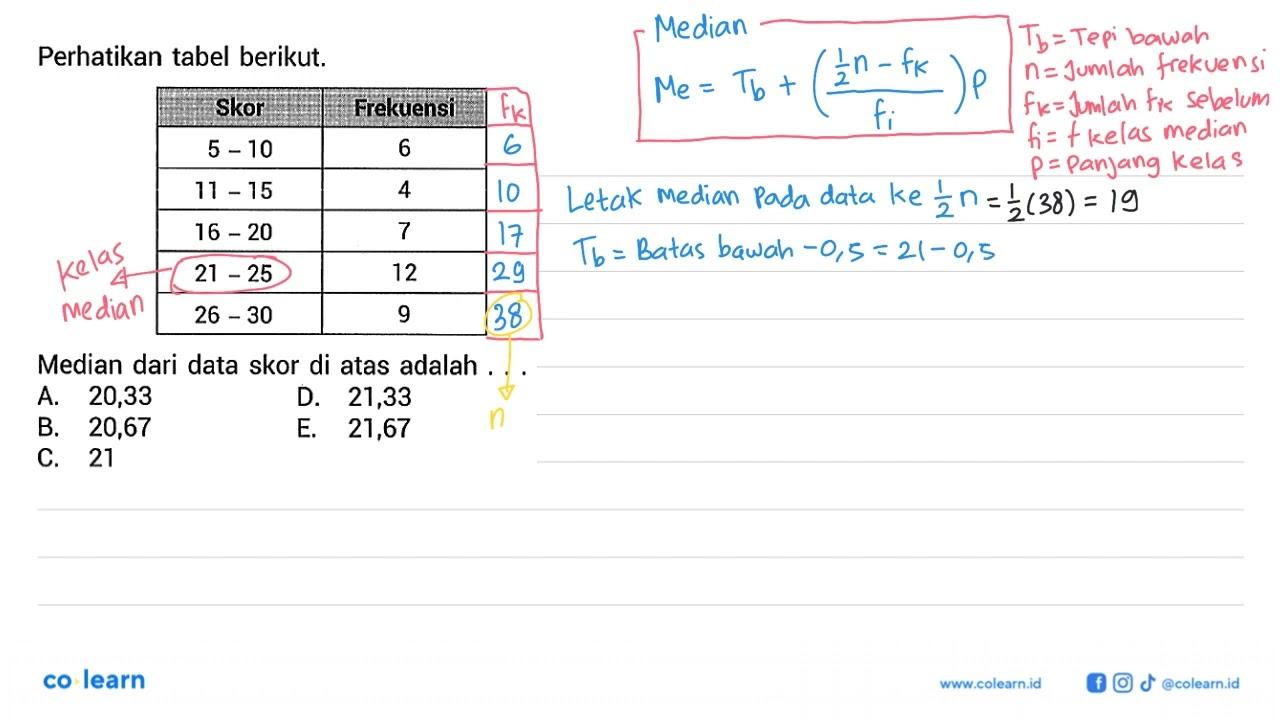 Perhatikan tabel berikut.
Skor Frekuensi fk
5 – 10 6 6
11 – 15 4 10
16 – 20 7 17
21 – 25 12 29
26 – 30 9 38
kelas median
n
Median dari data skor di atas adalah . . .
A. 20,33 D. 21,33
B. 20,67 E. 21,67
C. 21
Median
Me = Tb + ((1/2 n - fk)/fi) p
Tb = Tepi bawah
n = Jumlah frekuensi
fk = Jumlah fk sebelum
fi = f kelas median
p = Panjang kelas
Letak median pada data ke 1/2 n = 1/2 (38) = 19
Tb = Batas bawah - 0,5 = 21 - 0,5
co learn
www.colearn.id @colearn.id